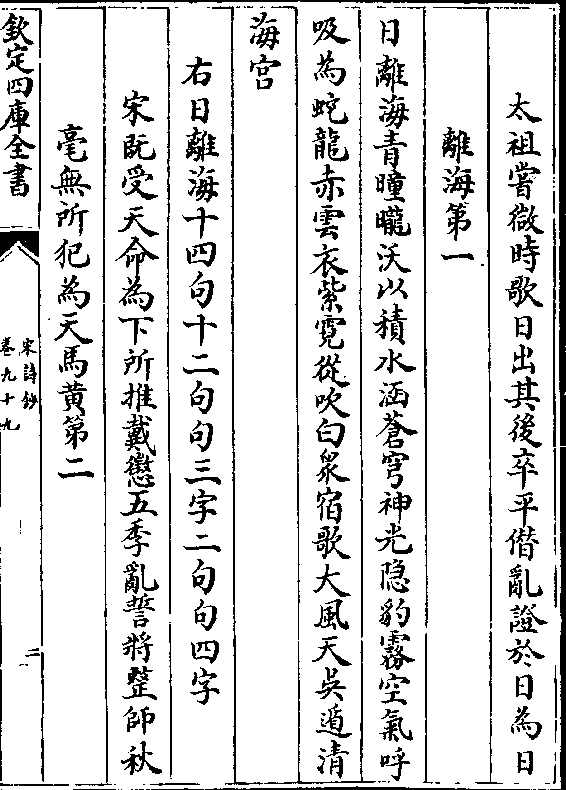 太祖嘗微時歌日出其後卒平僭亂證於日為日
離海第一
日離海青曈曨沃以積水涵蒼穹神光隐豹霧空氣呼
吸為蛇龍赤雲衣紫霓從吹白衆宿歌大風天吳遁清
海宫
右日離海十四句十二句句三字二句句四字
宋既受天命為下所推戴懲五季亂誓將整師秋
毫無所犯為天馬黄第二
欽定四庫全書
宋詩鈔
卷九十九
二